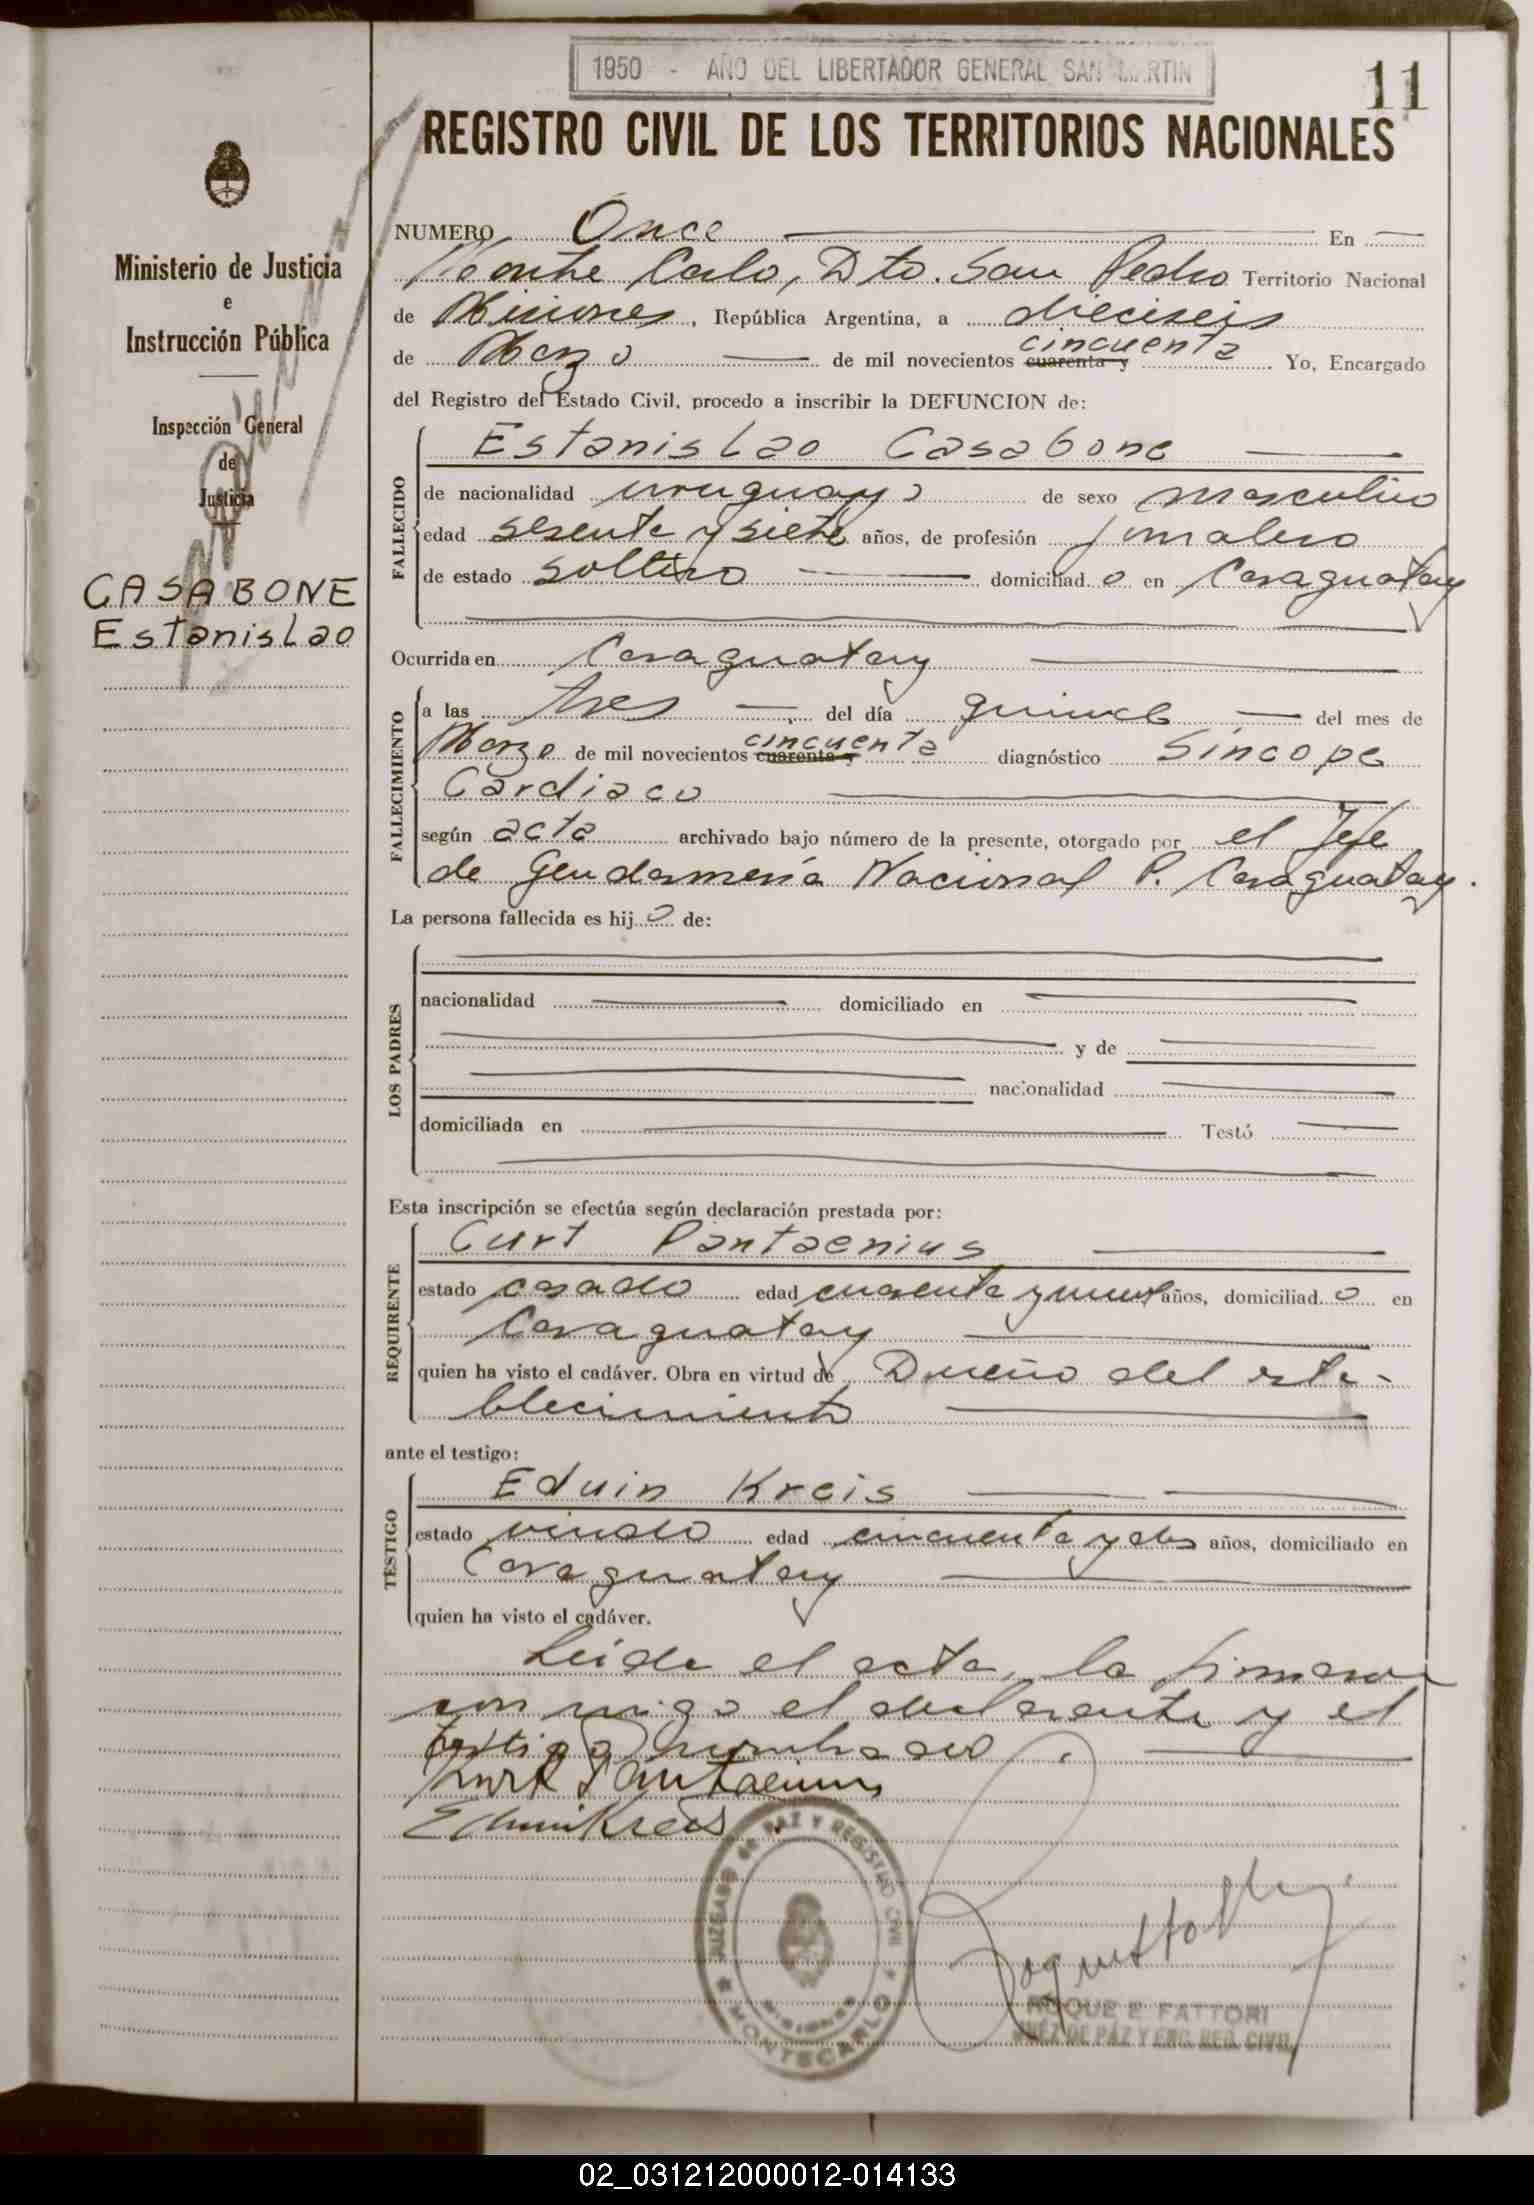 1950 - AÑO DEL LIBERTADOR GENERAL SAN MARTIN
11
REGISTRO CIVIL DE LOS TERRITORIOS NACIONALES
Ministerio de Justicia
e
Instrucción Pública
Inspección General
de
Justicia
CASABONE
Estanislao
NUMERO Once En
Monte Carlo, Dto. San Pedro Territorio Nacional
de Misiones, República Argentina, a dieciseis
de Marzo de mil novecientos cuarenta y cincuenta Yo, Encargado
del Registro del Estado Civil, procedo a inscribir la DEFUNCION de:
FALLECIDO
Estanislao Casabone
de nacionalidad uruguayo de sexo masculino
edad sesenta y siete años, de profesión jornalero
de estado soltero domiciliado en Caraguatay
Ocurrida en Caraguatay
FALLECIMIENTO
a las tres del día quince del mes de
Marzo de mil novecientos cuarenta y cincuenta diagnóstico Sincope
Cardiaco
según acta archivado bajo número de la presente, otorgado por el Jefe
de Gendarmería Nacional P. Caraguatay.
La persona fallecida es hijo de:
LOS PADRES
nacionalidad domiciliado en
y de
nacionalidad
domiciliada en Testó
Esta inscripción se efectúa según declaración prestada por:
REQUIRENTE
Curt Pantaenius
estado casado edad cuarenta y nueve años, domiciliado en
Caraguatay
quien ha visto el cadáver. Obra en virtud de Dueño del esta-
blecimiento
ante el testigo:
TESTIGO
Eduin Kreis
estado viudo edad cincuenta y dos años, domiciliado en
Caraguatay
quien ha visto el cadáver.
Leida el acta, la firmaron
conmigo el declarante y el
testigo nombrado.
Kurt Pantaenius
Edwin Kreis
JUZGADO DE PAZ Y REGISTRO CIVIL
MISIONES
MONTECARLO
ROQUE E. FATTORI
JUEZ DE PAZ Y ENC. REG. CIVIL
02_031212000012-014133